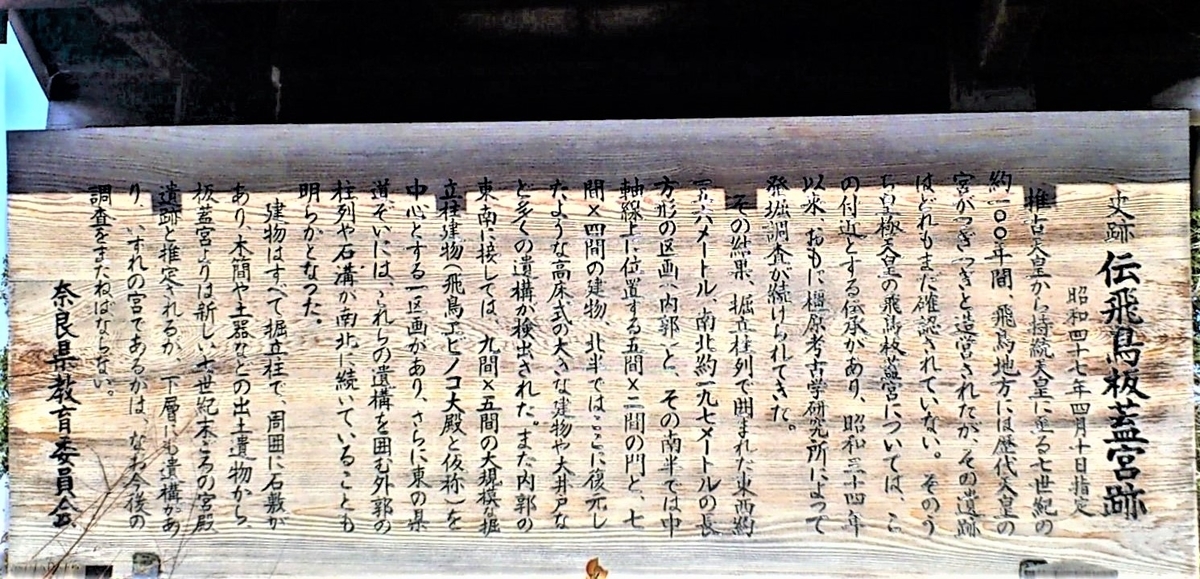 史跡 伝飛鳥板蓋宮跡
昭和四十七年四月十日指定
推古天皇から持統天皇に至る七世紀の
約一〇〇年間、飛鳥地方には歴代天皇の
宮がつぎつぎと造営されたが、その遺跡
はどれもまだ確認されていない。そのう
ち皇極天皇の飛鳥板蓋宮については、こ
の付近とする伝承があり、昭和三十四年
以来、おもに橿原考古学研究所によって
発掘調査が続けられてきた。
その結果、掘立柱列で囲まれた東西約
一五六メートル、南北約一九七メートルの長
方形の区画(内郭)と、その南半では中
軸線上に位置する五間×二間の門と、七
間×四間の建物、北半ではここに復元し
たような高床式の大きな建物や大井戸な
ど多くの遺構が検出された。また内郭の
東南に接しては、九間×五間の大規模な掘
立柱建物(飛鳥エビノコ大殿と仮称)を
中心とする一区画があり、さらに東の県
道ぞいには、これらの遺構を囲む外郭の
柱列や石溝が南北に続いていることも
明らかとなった。
建物はすべて掘立柱で、周囲に石敷が
あり、木簡や土器などの出土遺物から
板蓋宮よりは新しい七世紀末ころの宮殿
遺跡と推定されるが、下層にも遺構があ
り、いずれの宮であるかは、なお今後の
調査をまたねばならない。
奈良県教育委員会